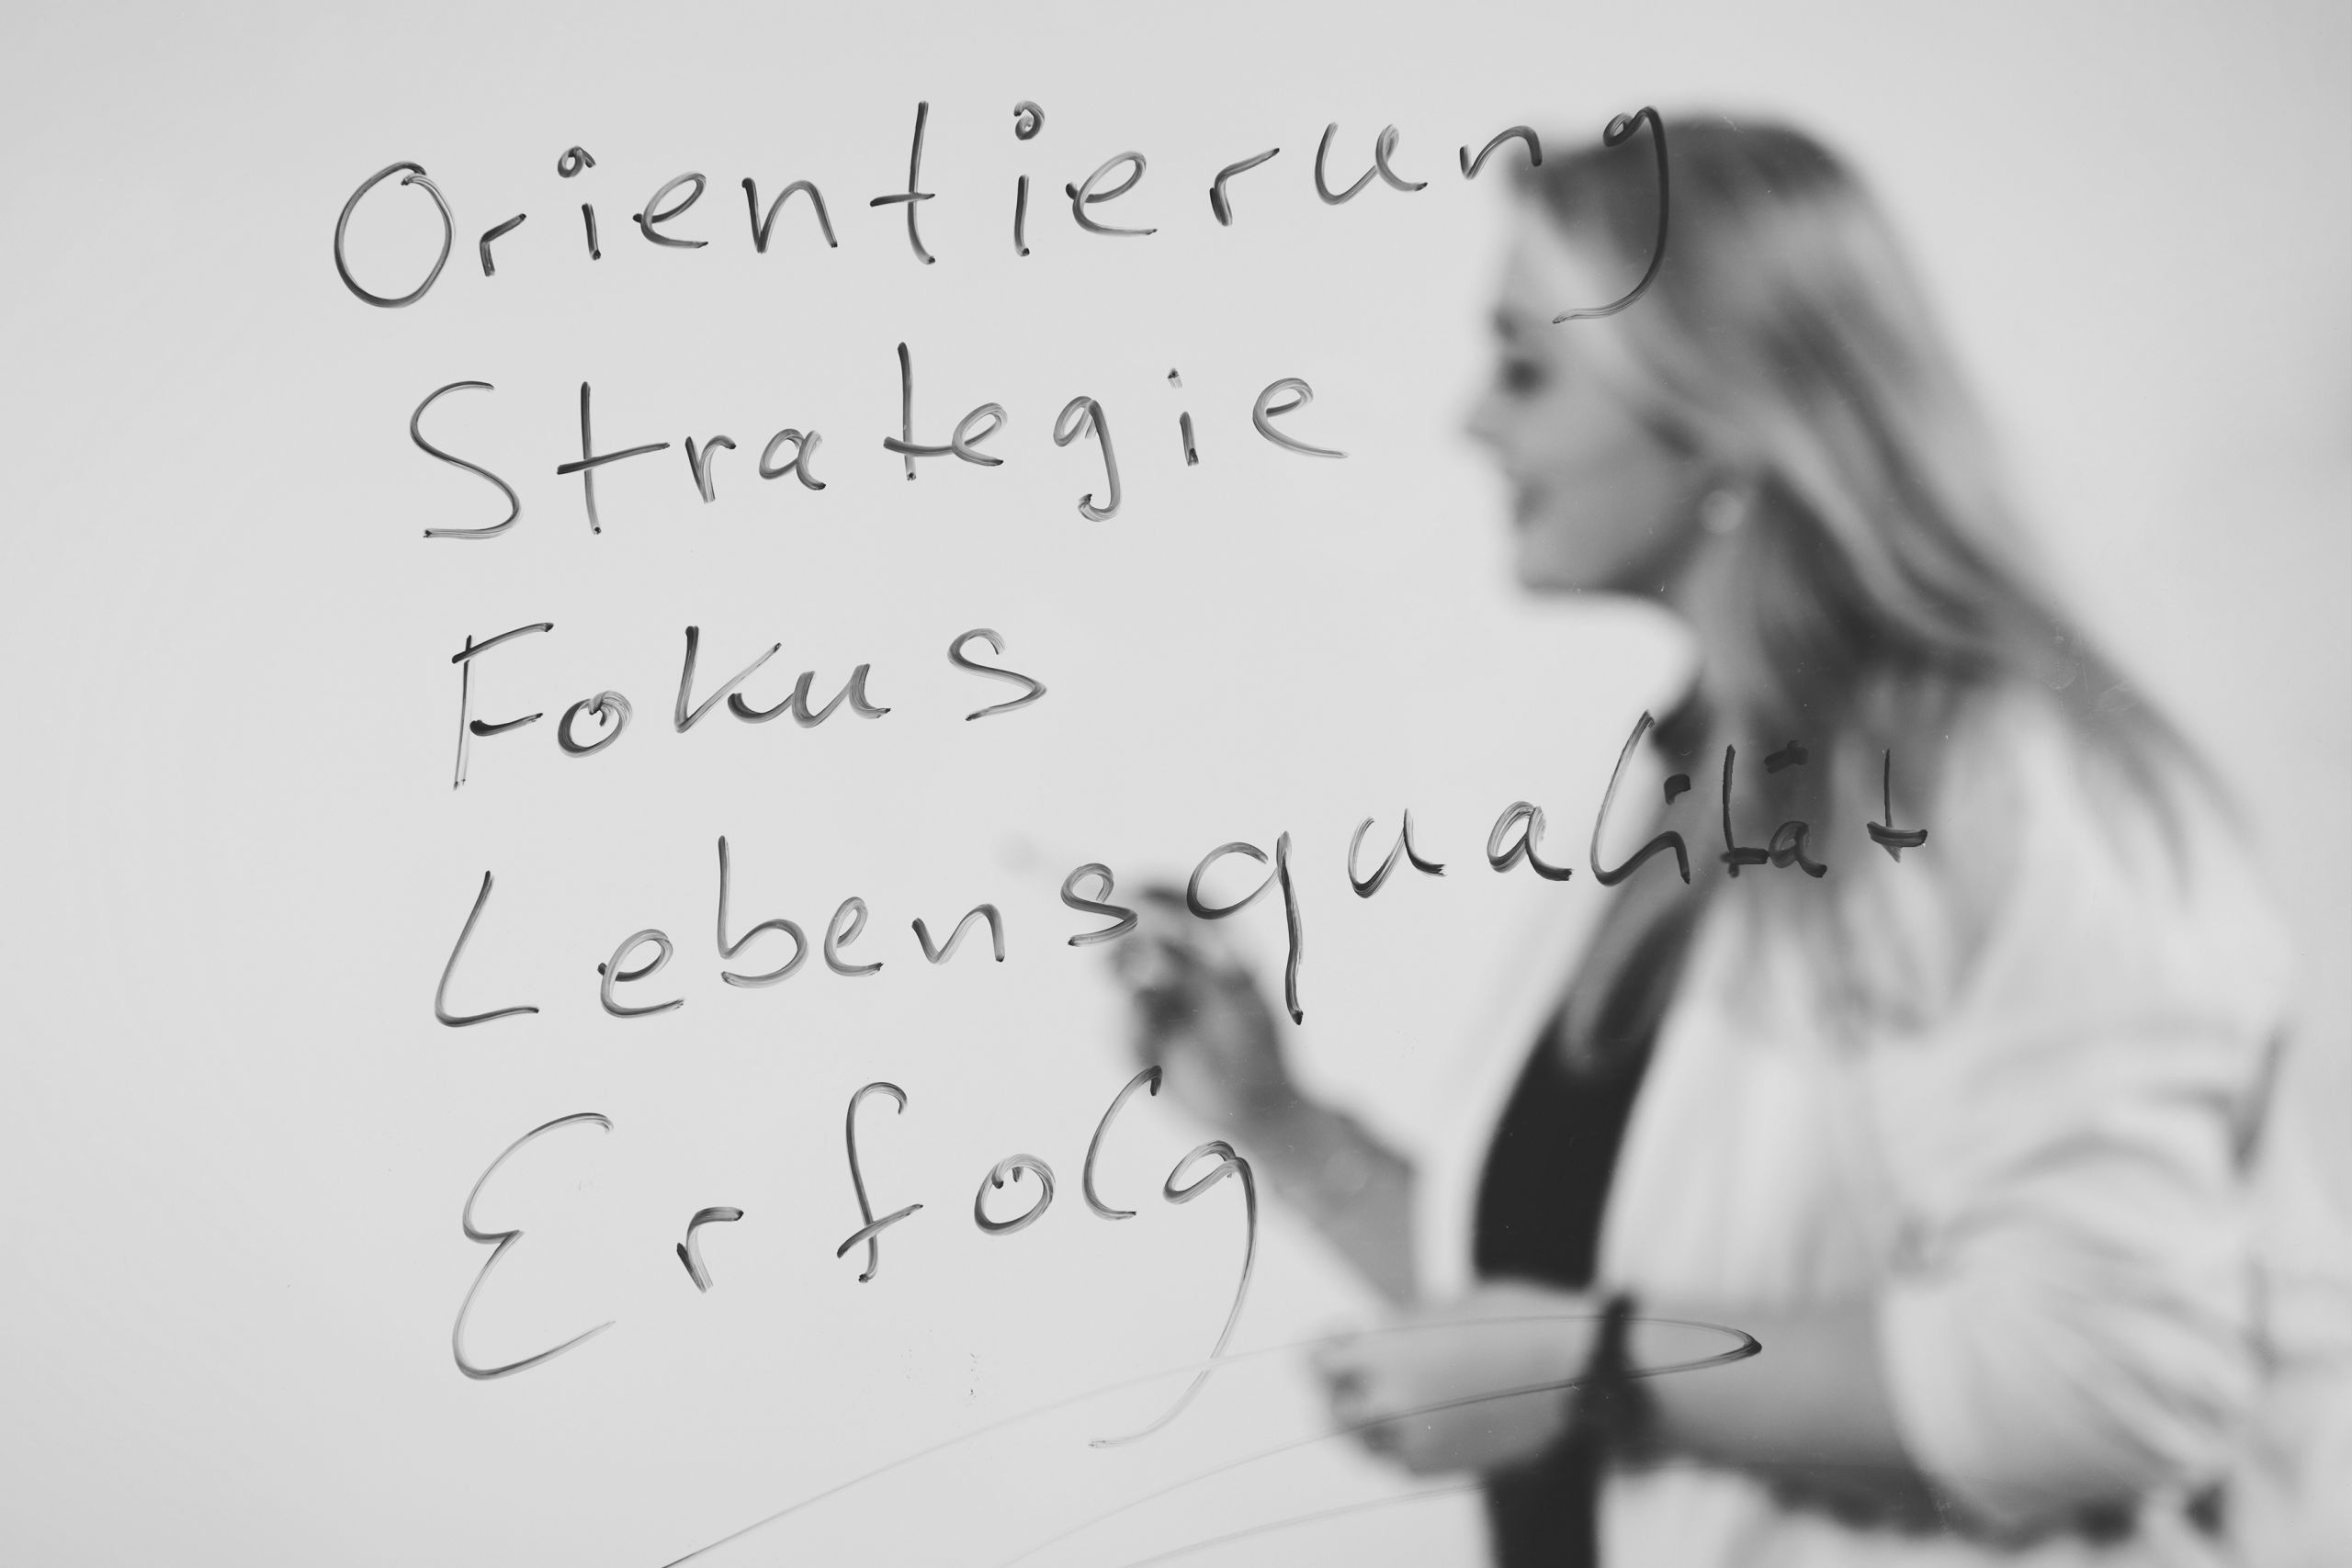 Orientierung
Strategie
Fokus
Lebensqualität
Erfolg